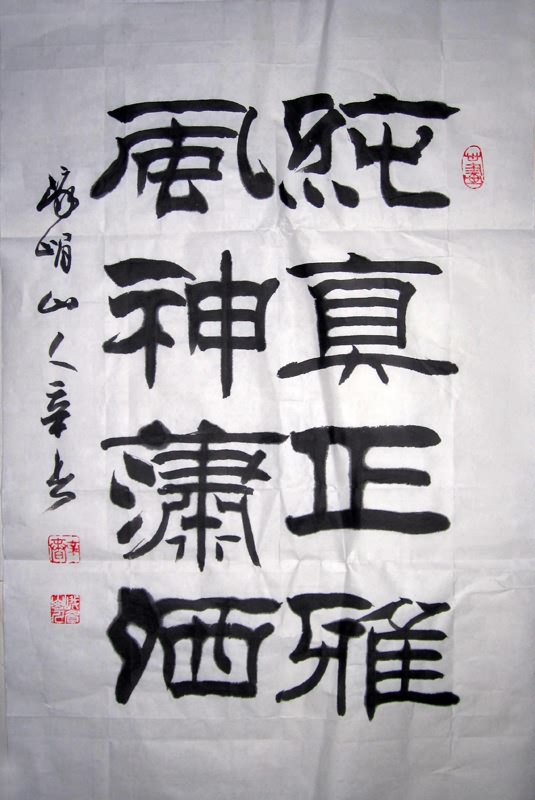 純真正雅
風神瀟晒
峨嵋山人辛书